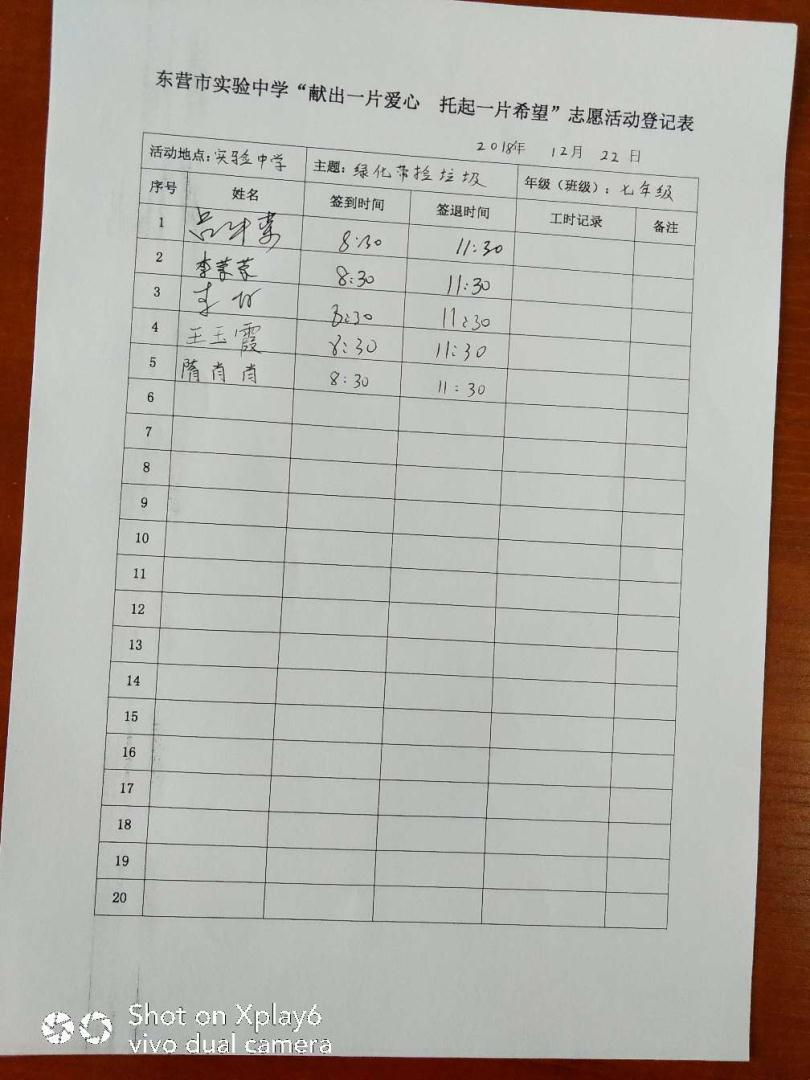 东营市实验中学“献出一片爱心 托起一片希望”志愿活动登记表
2018年 12月 22日
活动地点:实验中学 主题:绿化带捡垃圾 年级(班级):七年级
序号 姓名 签到时间 签退时间 工时记录 备注
1 8:30 11:30
2 李蒙蒙 8:30 11:30
3 8:30 11:30
4 王玉霞 8:30 11:30
5 隋肖肖 8:30 11:30
6
7
8
9
10
11
12
13
14
15
16
17
18
19
20
Shot on Xplay6
vivo dual camera